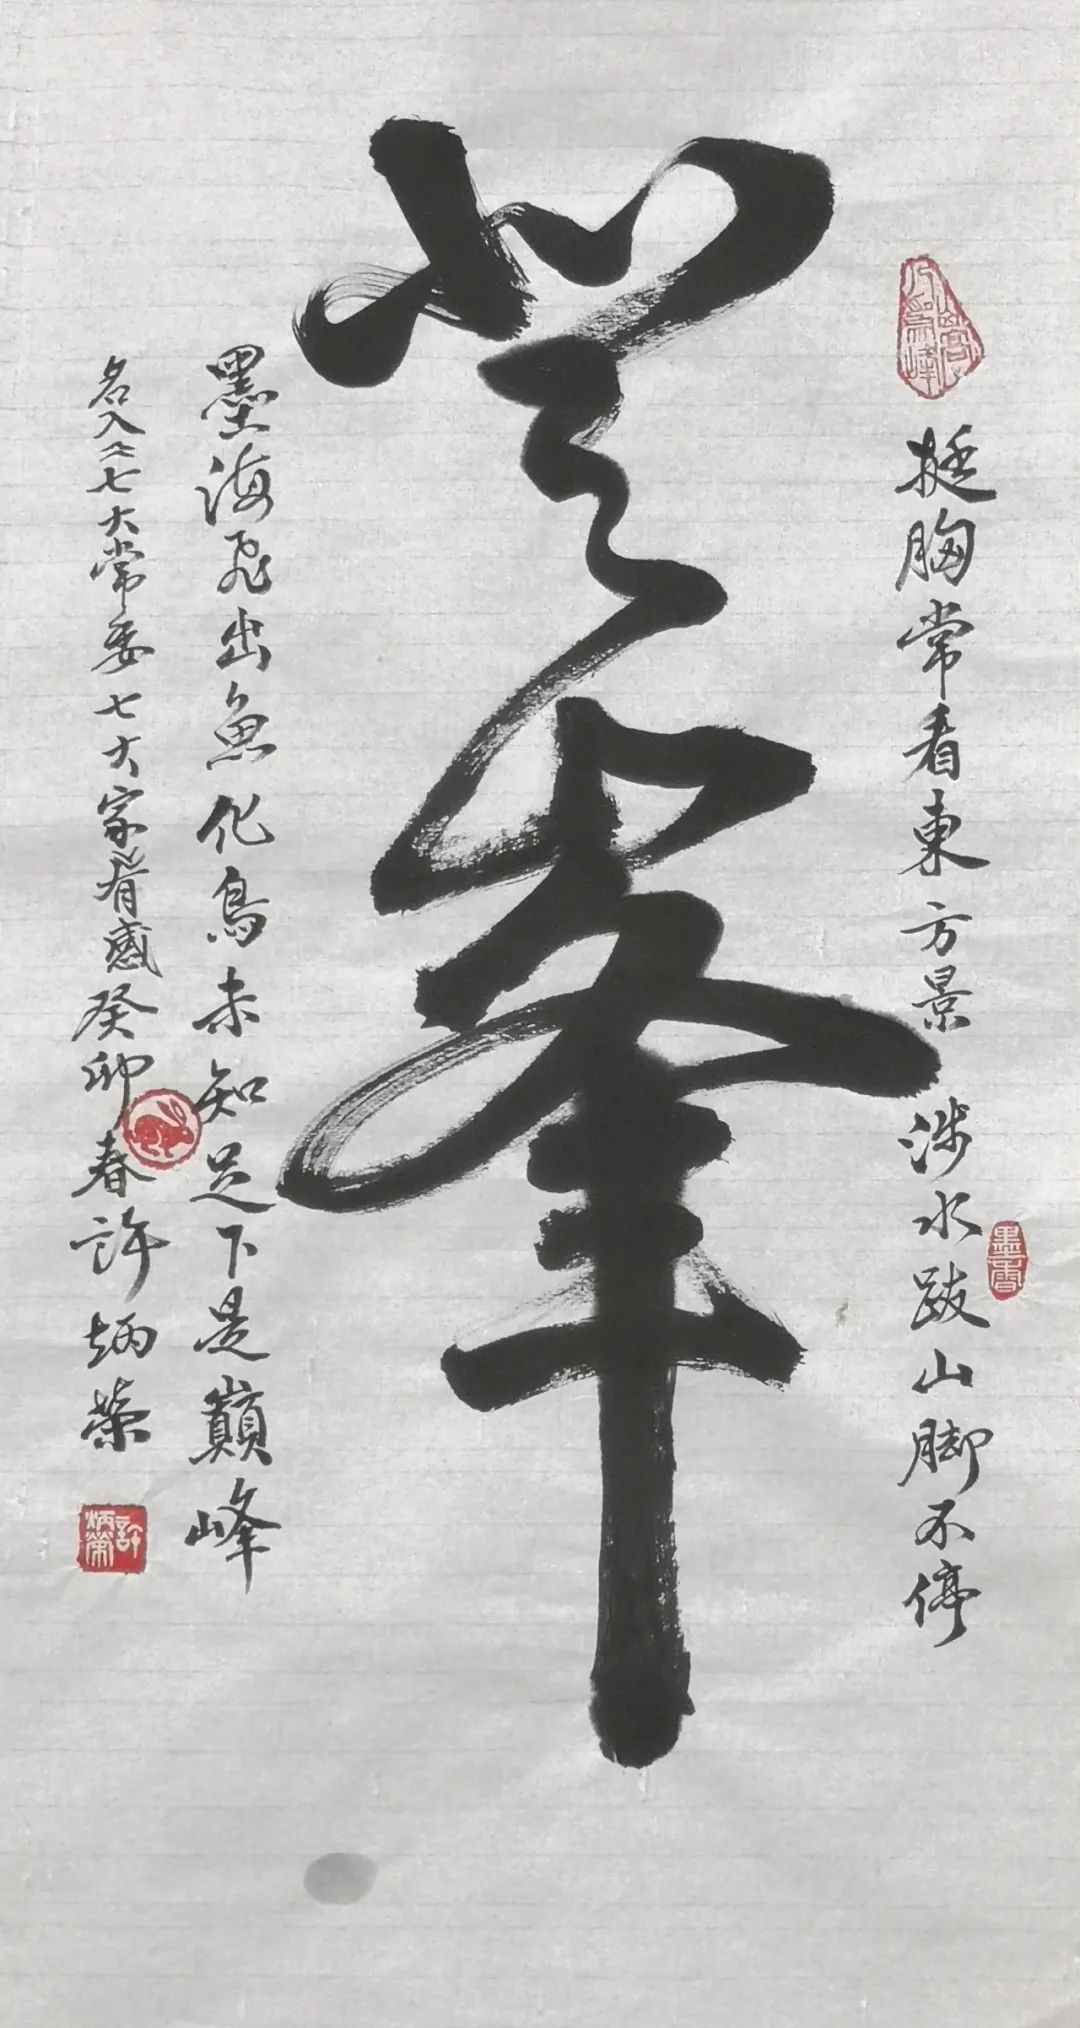 山高人為峰
挺胸常看東方景 涉水跋山脚不停
墨香
登峯
墨海飛出魚化鳥未知足下是巔峰
名入《七大常委七大家》有感癸卯春許炳榮
許炳榮